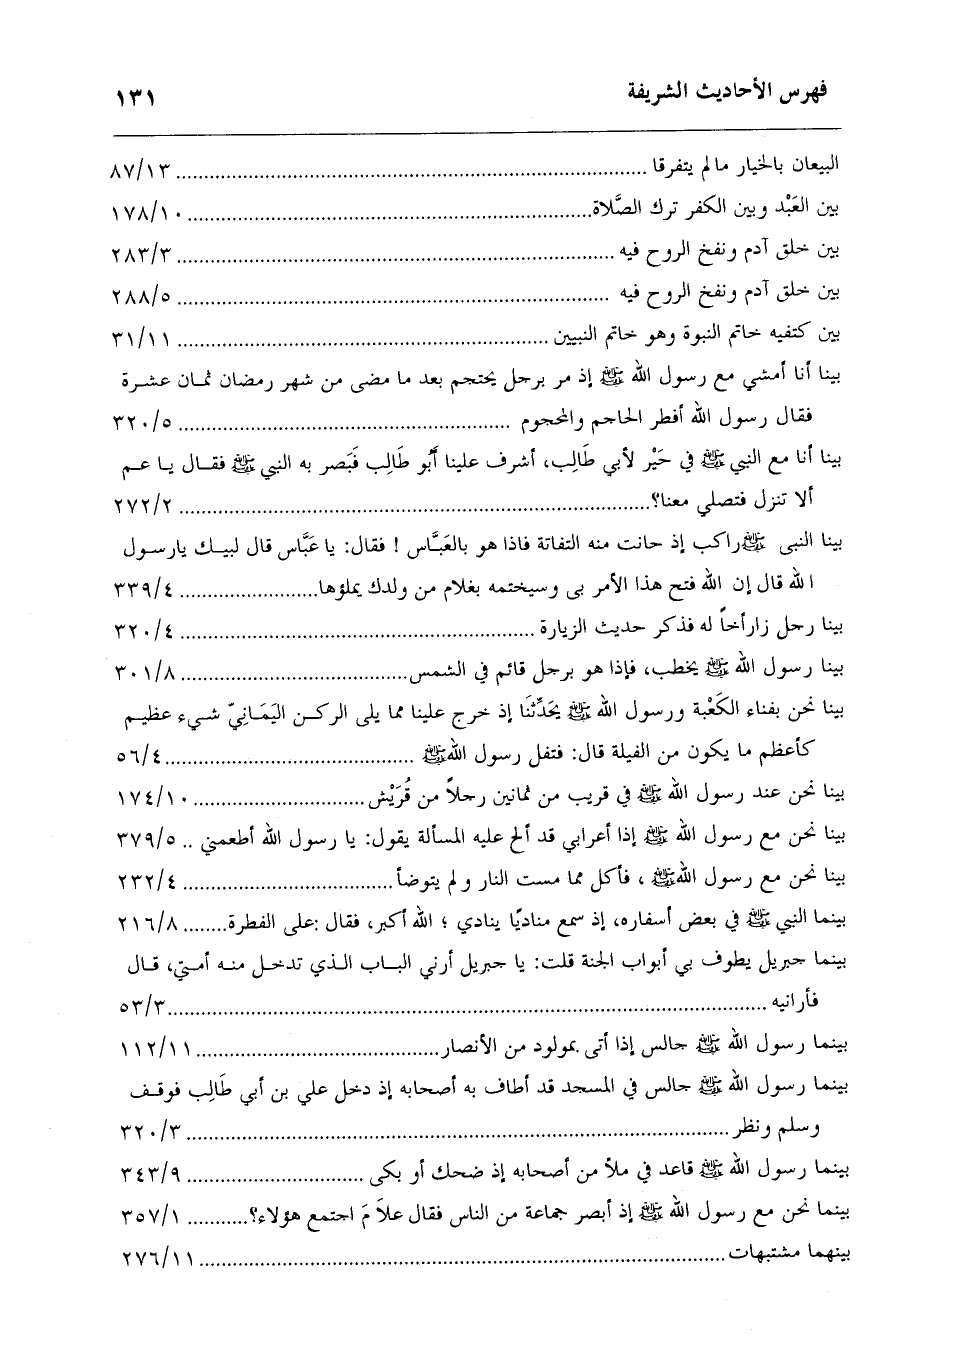 فهرس الأحاديث الشريفة ١٣١
البيعان بالخيار مالم يتفرقا ................ ٨٧/١٣
بين العَبْد وبين الكفر ترك الصَّلاة ................ ١٧٨/١٠
بين خلق آدم ونفخ الروح فيه ................ ٢٨٣/٣
بين خلق آدم ونفخ الروح فيه ................ ٢٨٨/٥
بين كتفيه خاتم النبوة وهو خاتم النبيين ................ ٣١/١١
بينا أنا أمشي مع رسول الله ﷺ إذ مر برجل يحتجم بعد ما مضى من شهر رمضان ثمـان عشـرة
فقال رسول الله أفطر الحاجم والمحجوم ................ ٣٢٠/٥
بينا أنا مع النبي ﷺ في حَيْر لأبي طَالِب، أشرف علينا أَبُو طَالِب فَبَصر به النبي ﷺ فقـال يـا عـم
ألا تنزل فتصلي معنا؟ ................ ٢٧٢/٢
بينا النبى ﷺ راكب إذ حانت منه التفاتة فاذا هو بالعَبَّاس ! فقال: يا عَبَّاس قال لبيـك يارسـول
الله قال إن الله فتح هذا الأمر بى وسيختمه بغلام من ولدك يملؤها ................ ٣٣٩/٤
بينا رجل زار أخاً له فذكر حديث الزيارة ................ ٣٢٠/٤
بينا رسول الله ﷺ يخطب، فإذا هو برجل قائم في الشمس ................ ٣٠١/٨
بينا نحن بفناء الكَعْبة ورسول الله ﷺ يحَدِّثنَا إذ خرج علينا مما يلى الركـن اليَمَـانِيّ شـيء عظيـم
كأعظم ما يكون من الفيلة قال: فتفل رسول الله ﷺ ................ ٥٦/٤
بينا نحن عند رسول الله ﷺ في قريب من ثمانين رجلاً من قُرَيْش ................ ١٧٤/١٠
بينا نحن مع رسول الله ﷺ إذا أعرابي قد ألح عليه المسألة يقول: يا رسول الله أطعمني .. ٣٧٩/٥
بينا نحن مع رسول الله ﷺ ، فأكل مما مست النار و لم يتوضأ ................ ٢٣٢/٤
بينما النبي ﷺ في بعض أسفاره، إذ سمع مناديًا ينادي ؛ الله أكبر، فقال :على الفطرة ........ ٢١٦/٨
بينما جبريل يطوف بي أبواب الجنة قلت: يا جبريل أرني البـاب الـذي تدخـل منـه أمـتي، قـال
فأرانيه ................ ٥٣/٣
بينما رسول الله ﷺ جالس إذا أتى بمولود من الأنصار ................ ١١٢/١١
بينما رسول الله ﷺ جالس في المسجد قد أطاف به أصحابه إذ دخل علي بن أبي طَالِب فوقـف
وسلم ونظر ................ ٣٢٠/٣
بينما رسول الله ﷺ قاعد في ملأ من أصحابه إذ ضحك أو بكى ................ ٣٤٣/٩
بينما نحن مع رسول الله ﷺ إذ أبصر جماعة من الناس فقال علاَ مَ اجتمع هؤلاء؟ ........... ٣٥٧/١
بينهما مشتبهات ................ ٢٧٦/١١